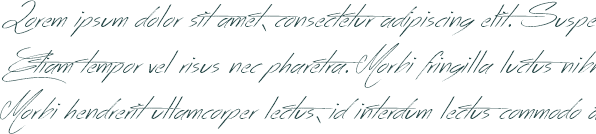 Lorem ipsum dolor sit amet, consectetur adipiscing elit. Suspe
Etiam tempor vel risus nec pharetra. Morbi fringilla luctus nibh
Morbi hendrerit ullamcorper lectus, id interdum lectus commodo a